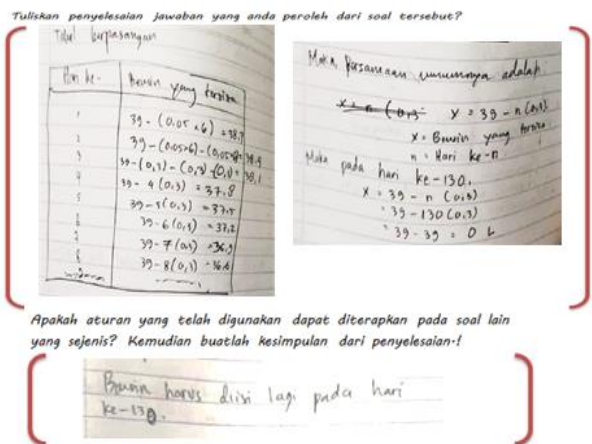 Tuliskan penyelesaian jawaban yang anda peroleh dari soal tersebut?
Tabel berpasangan
Hari ke-
Bensin yang tersisa
1
39 - (0,05 × 6) = 38,7
2
39 - (0,05×6) - (0,05×6) = 38,4
3
39 - (0,3) - (0,3) - (0,3) = 38,1
4
39 - 4 (0,3) = 37,8
5
39 - 5 (0,3) = 37,5
6
39 - 6 (0,3) = 37,2
7
39 - 7 (0,3) = 36,9
8
39 - 8 (0,3) = 36,6
Maka Persamaan umumnya adalah
X = 39 - n (0,3)
X = Bensin yang tersisa
n = Hari ke-n
Maka pada hari ke-130,
X = 39 - n (0,3)
= 39 - 130 (0,3)
= 39 - 39 = 0 L
Apakah aturan yang telah digunakan dapat diterapkan pada soal lain
yang sejenis? Kemudian buatlah kesimpulan dari penyelesaian.!
Bensin harus diisi lagi pada hari
ke-130.